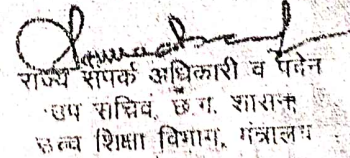 राज्य संपर्क अधिकारी व पदेन
उप सचिव, छ.ग. शासन
उच्च शिक्षा विभाग, मंत्रालय